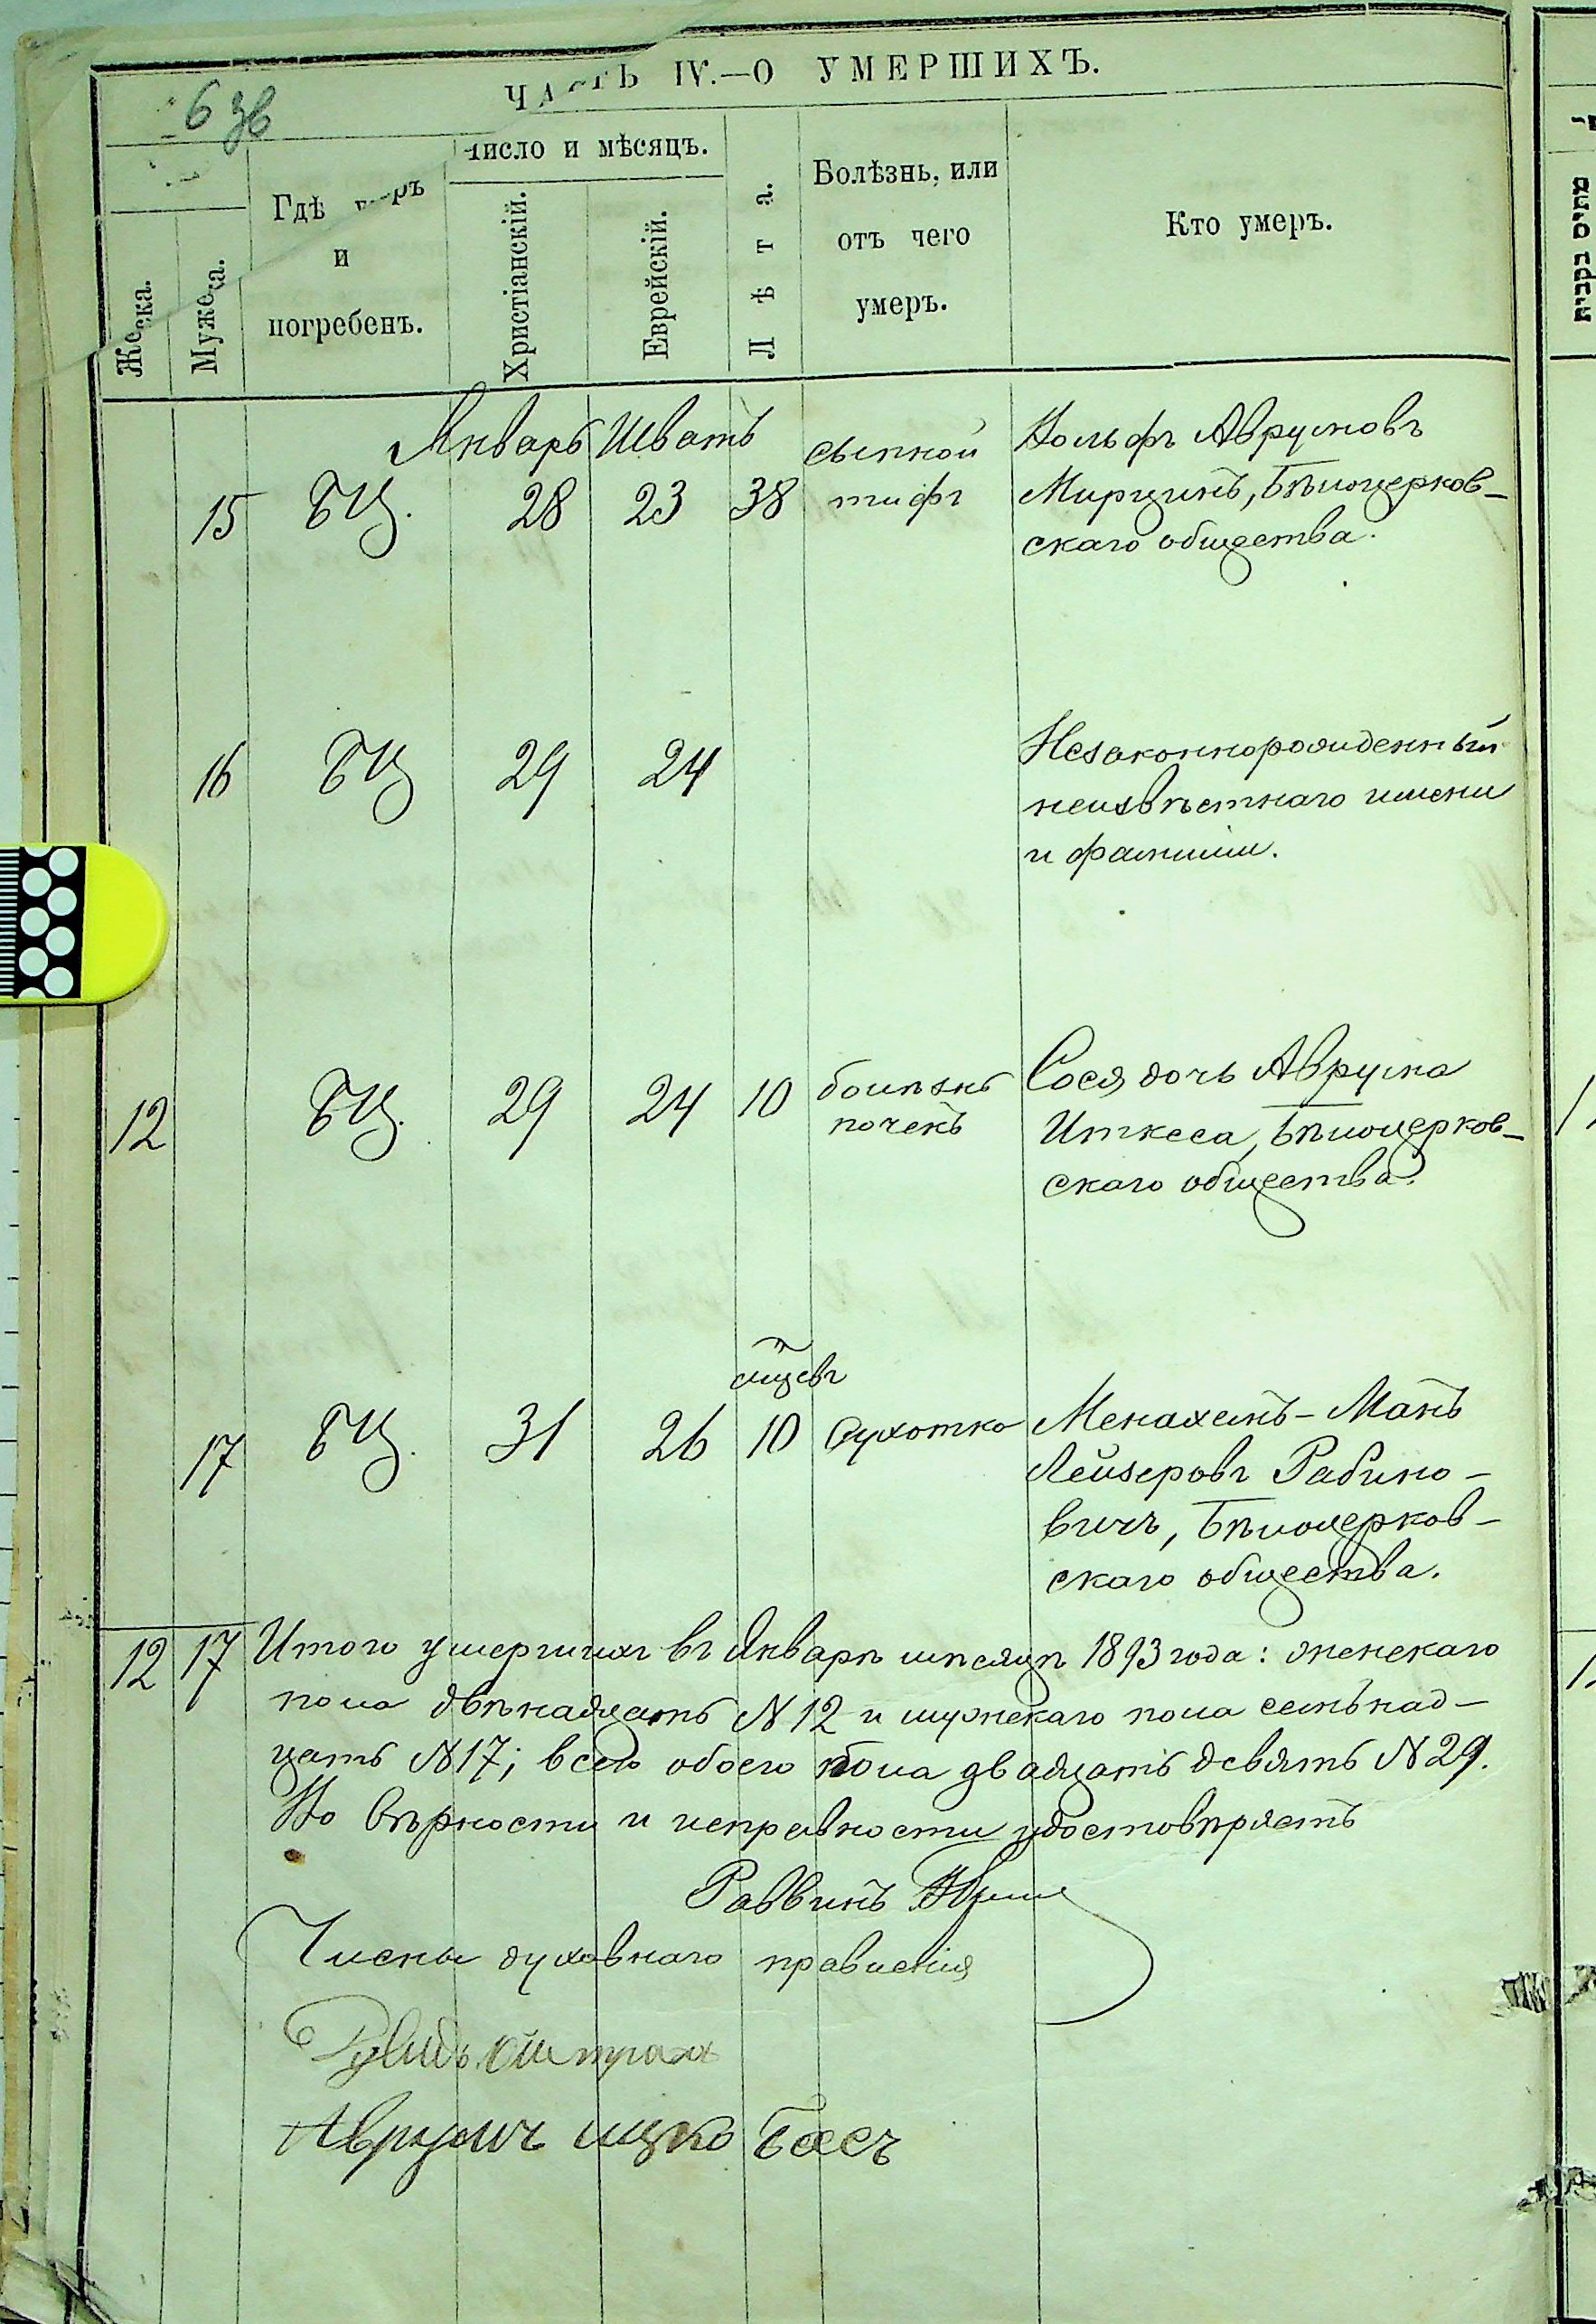 6 зв
ЧАСТЬ IV.—О УМЕРШИХЪ.
Число и мѣсяцъ.
Женска.
Мужска.
Гдѣ умеръ
и
погребенъ.
Христіанскій.
Еврейскій.
Лѣта.
Болѣзнь, или
отъ чего
умеръ.
Кто умеръ.
Январь Шватъ
15 БЦ. 28 23 38
сыпной
тифъ
Вольфъ Аврумовъ
Мирцинъ, Бѣлоцерков-
скаго общества.
16 БЦ 29 24
Незаконнорожденный
неизвѣстнаго имени
и фамиліи.
12 БЦ. 29 24 10
болѣзнь
почекъ
Сося дочь Аврума
Иткеса, Бѣлоцерков-
скаго общества.
мцевъ
17 БЦ. 31 26 10 Сухотка
Менахемъ-Манъ
Лейзеровъ Рабино-
вичъ, Бѣлоцерков-
скаго общества.
12 17 Итого умершихъ въ Январѣ мѣсяцѣ 1893 года: женскаго
пола двѣнадцать N 12 и мужскаго пола семьнад-
цать N 17; всего обоего пола двадцать девять N 29.
Во вѣрности и исправности удостовѣряетъ
Раввинъ
Члены духовнаго правленія
Аврумъ ицко Басъ
מקום הקבורה